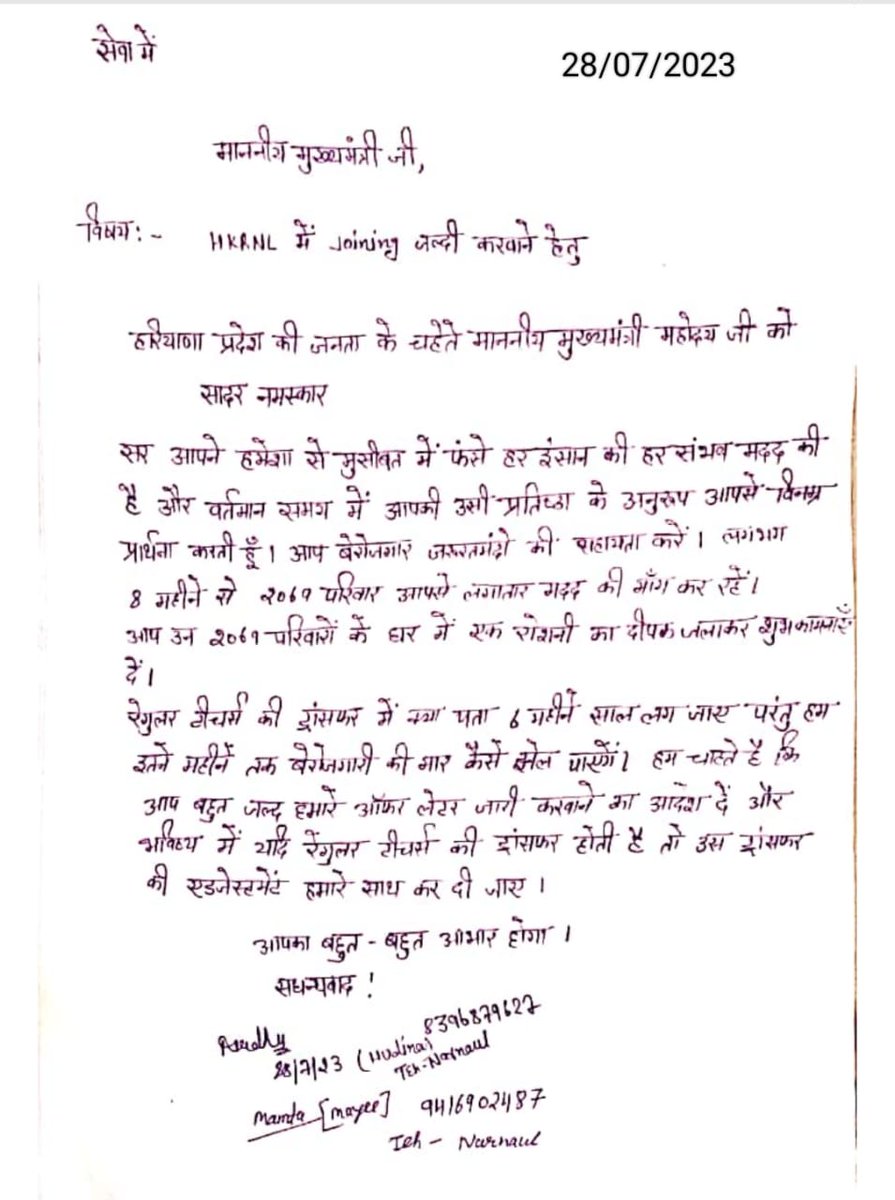 सेवा में
28/07/2023
माननीय मुख्यमंत्री जी,
विषय:- HKRNL में Joining जल्दी करवाने हेतु
हरियाणा प्रदेश की जनता के चहेते माननीय मुख्यमंत्री महोदय जी को
सादर नमस्कार
सर आपने हमेशा से मुसीबत में फंसे हर इंसान की हर संभव मदद की
है और वर्तमान समय में आपकी उसी प्रतिष्ठा के अनुरूप आपसे विनम्र
प्रार्थना करती हूँ। आप बेरोजगार जरूरतमंदो की सहायता करें। लगभग
8 महीने से 2069 परिवार आपसे लगातार मदद की माँग कर रहें।
आप उन 2069 परिवारों के घर में एक रोशनी का दीपक जलाकर शुभकामनाएँ
दें।
रेगुलर टीचर्स की ट्रांसफर में क्या पता 6 महीने साल लग जाए परंतु हम
इतने महीनें तक बेरोजगारी की मार कैसे झेल पाएगें। हम चाहते है कि
आप बहुत जल्द हमारे ऑफर लेटर जारी करवाने का आदेश दें और
भविष्य में यदि रेगुलर टीचर्स की ट्रांसफर होती है तो उस ट्रांसफर
की एडजेस्टमेंट हमारे साथ कर दी जाए।
आपका बहुत - बहुत आभार होगा।
सधन्यवाद!
8396879627
28/7/23 (Hudina)
Teh-Narnaul
Mamta [mayee] 9416902487
Teh - Narnaul